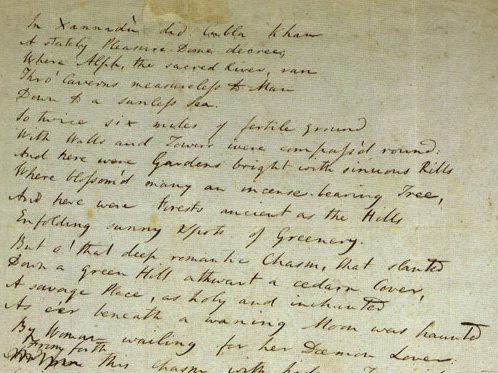 In Xannadù did Cubla Khan
A stately Pleasure-Dome decree;
Where Alph, the sacred River, ran
Thro' Caverns measureless to Man
Down to a sunless Sea.
So twice six miles of fertile ground
With Walls and Towers were compass'd round:
And here were Gardens bright with sinuous Rills
Where blossom'd many an incense-bearing Tree,
And here were Forests ancient as the Hills
Enfolding sunny Spots of Greenery.
But o! that deep romantic Chasm, that slanted
Down a green Hill athwart a cedarn Cover,
A savage Place, as holy and inchanted
As e'er beneath a waning Moon was haunted
By Woman wailing for her Dæmon Lover:
From forth
this Chasm with